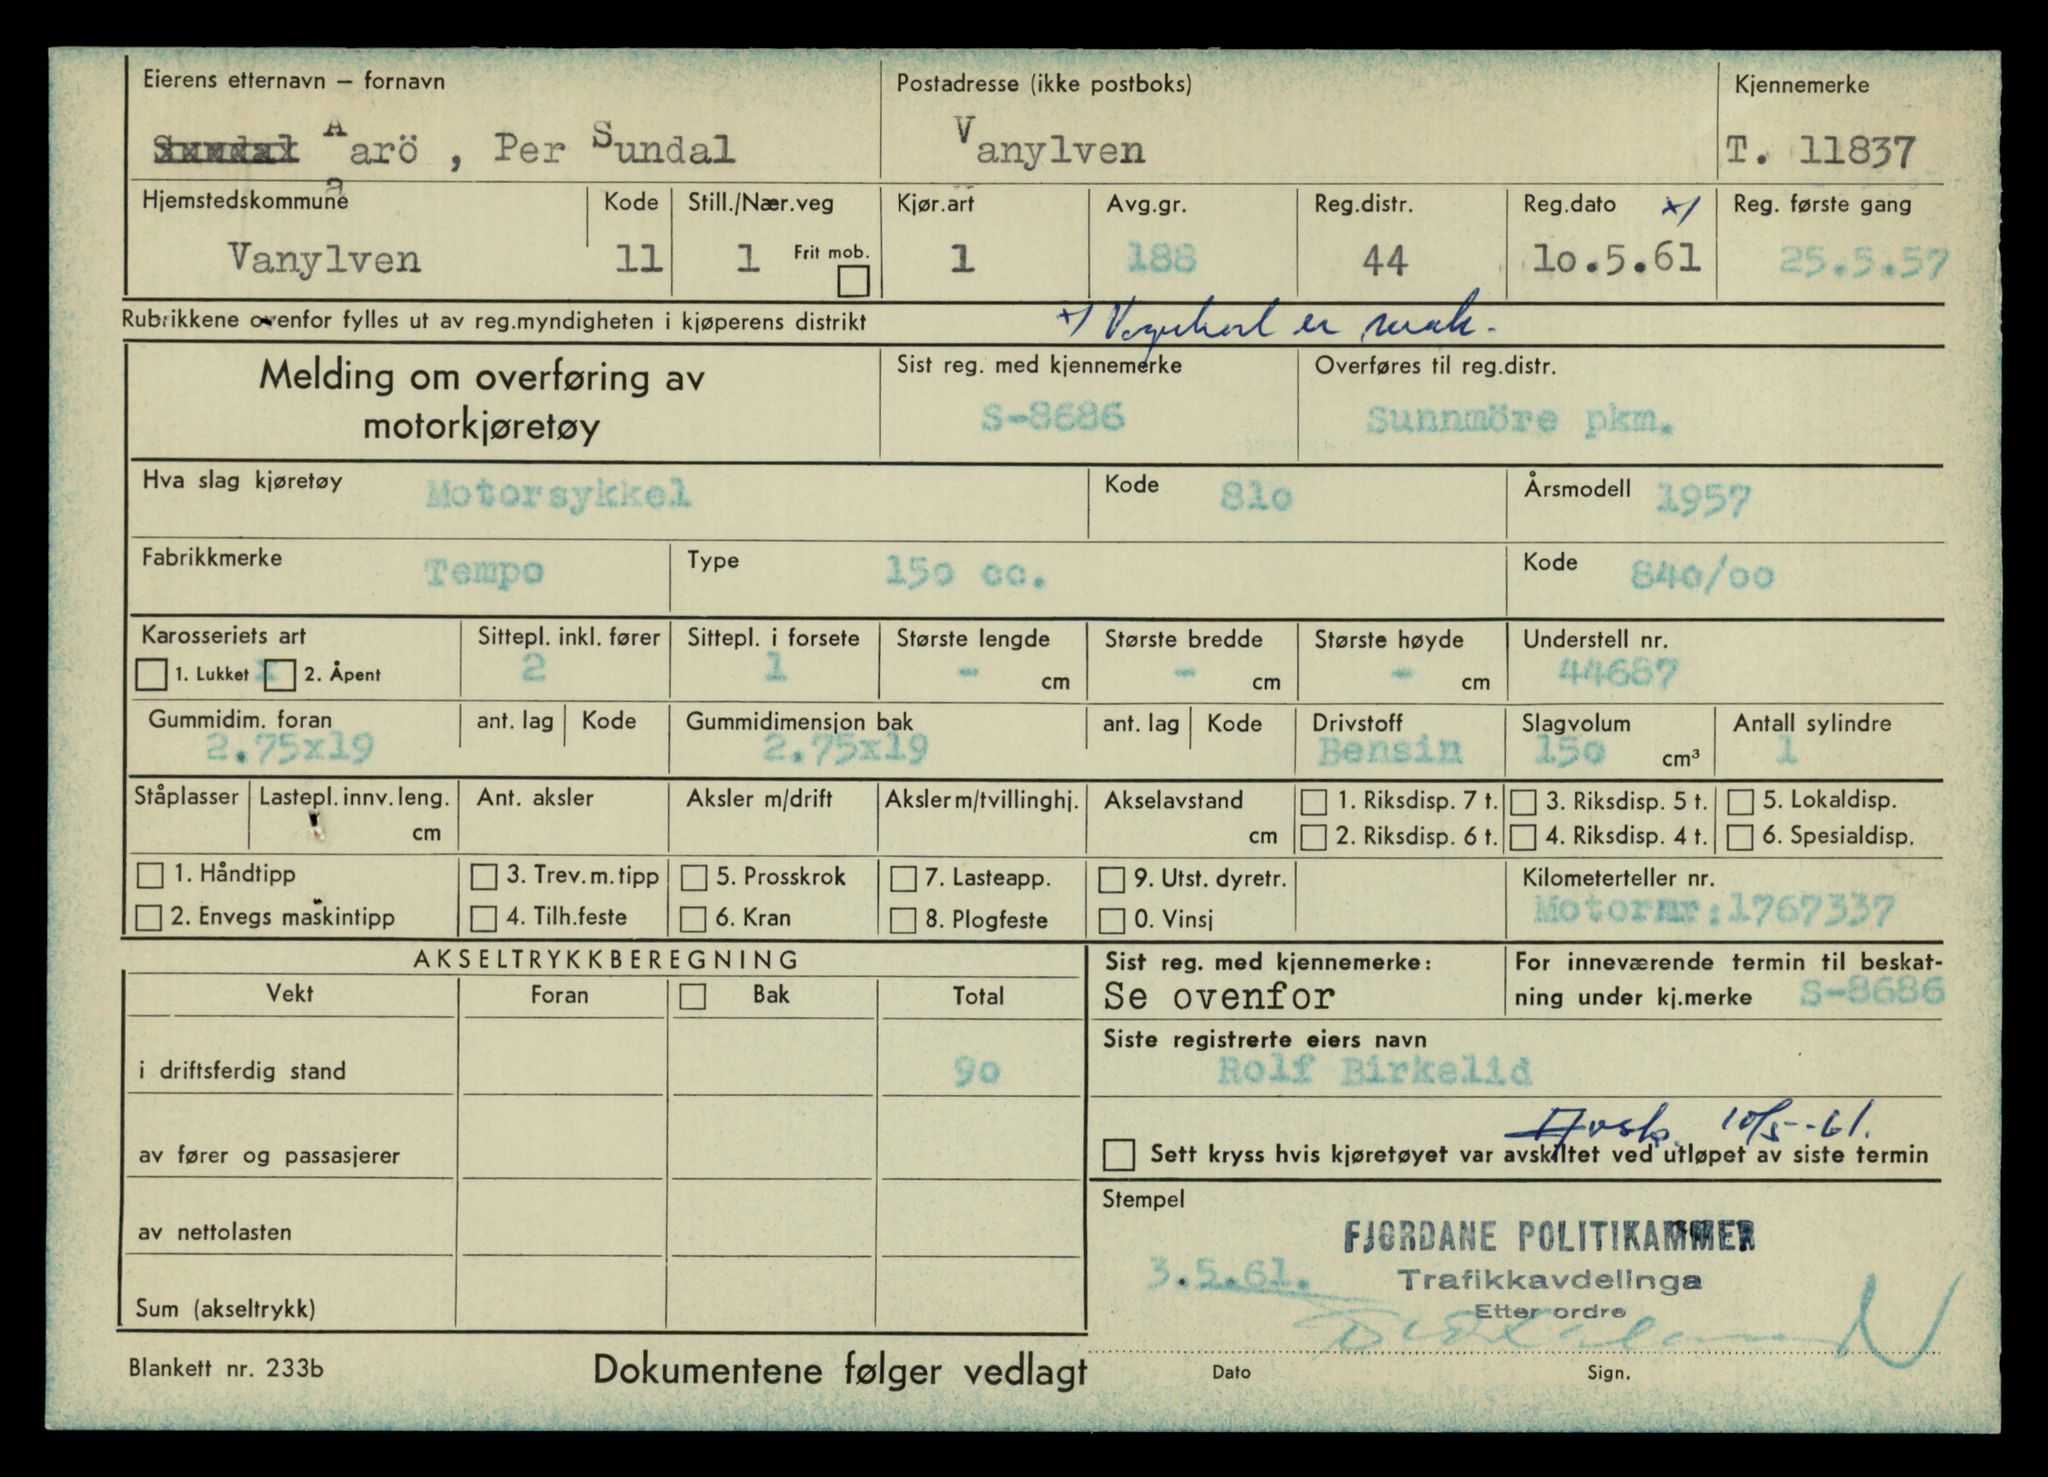 Eierens etternavn – fornavn Postadresse (ikke postboks) Kjennemerke
Sundal Aarö , Per Sundal Vanylven T. 11837
Hjemstedskommune Kode Still./Nær.veg Kjør.art Avg.gr. Reg.distr. Reg.dato x/ Reg. første gang
Vanylven 11 1 Frit mob. 1 188 44 1o.5.61 25.5.57
Rubrikkene ovenfor fylles ut av reg.myndigheten i kjøperens distrikt x/ Vognkort er
Melding om overføring av motorkjøretøy Sist reg. med kjennemerke Overføres til reg.distr.
S-8686 Sunnmöre pkm.
Hva slag kjøretøy Motorsykkel Kode 81o Årsmodell 1957
Fabrikkmerke Tempo Type 15o cc. Kode 84o/oo
Karosseriets art Sittepl. inkl. fører Sittepl. i forsete Største lengde Største bredde Største høyde Understell nr.
1. Lukket x 2. Åpent 2 1 - cm - cm - cm 44687
Gummidim. foran ant. lag Kode Gummidimensjon bak ant. lag Kode Drivstoff Slagvolum Antall sylindre
2.75x19 2.75x19 Bensin 15o cm³ 1
Ståplasser Lastepl. innv. leng. Ant. aksler Aksler m/drift Aksler m/tvillinghj. Akselavstand 1. Riksdisp. 7 t. 3. Riksdisp. 5 t. 5. Lokaldisp.
cm cm 2. Riksdisp. 6 t. 4. Riksdisp. 4 t. 6. Spesialdisp.
1. Håndtipp 3. Trev. m. tipp 5. Prosskrok 7. Lasteapp. 9. Utst. dyretr. Kilometerteller nr.
2. Envegs maskintipp 4. Tilh.feste 6. Kran 8. Plogfeste 0. Vinsj Motornr:1767337
AKSELTRYKKBEREGNING
Vekt Foran Bak Total
i driftsferdig stand 9o
av fører og passasjerer
av nettolasten
Sum (akseltrykk)
Sist reg. med kjennemerke: For inneværende termin til beskat-
Se ovenfor ning under kj.merke S-8686
Siste registrerte eiers navn
Rolf Birkelid
Avsk. 10/5-61.
Sett kryss hvis kjøretøyet var avskiltet ved utløpet av siste termin
Stempel
FJORDANE POLITIKAMMER
3.5.61. Trafikkavdelinga
Etter ordre
Blankett nr. 233b Dokumentene følger vedlagt Dato Sign.